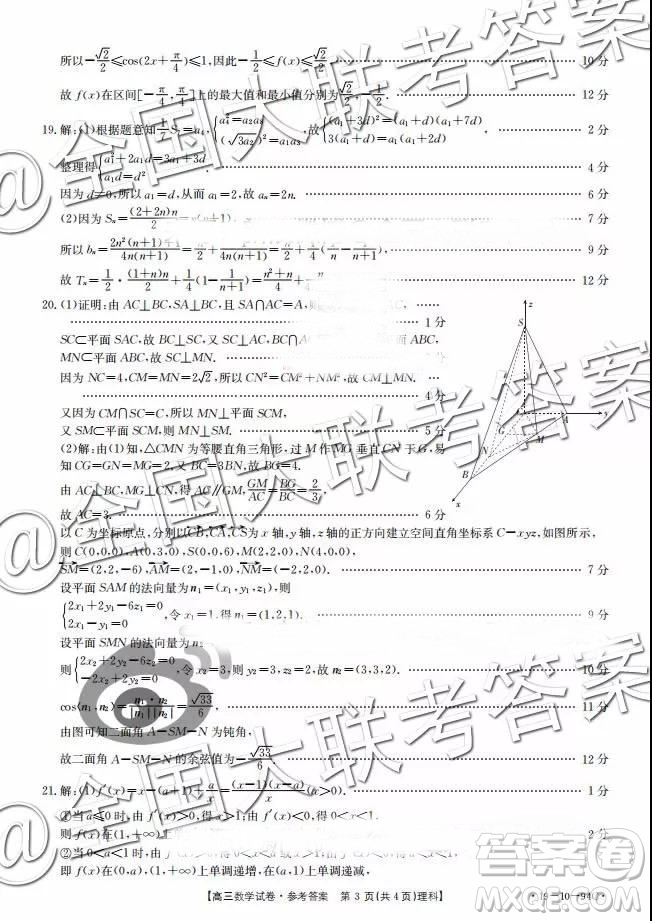 所以-√2/2≤cos(2x+π/4)≤1,因此-1/2≤f(x)≤√2/2. 10分
故 f(x)在区间[-π/4,π/4]上的最大值和最小值分别为√2/2,-1/2. 12分
19.解:(1)根据题意知1/7 S₇=a₄,{a₄²=a₂a₈ (√3a₂)²=a₁a₃,故{(a₁+3d)²=(a₁+d)(a₁+7d) (a₁+d)=a₁(a₁+2d) 2分
整理得{a₁²+2a₁d=3a₁+3d a₁d=d². 4分
因为d≠0,所以a₁=d,从而a₁=2,故aₙ=2n. 6分
(2)因为Sₙ=(2+2n)n/2 7分
所以bₙ=2n²(n+1)+1/4n(n+1)=n/2+1/4n(n+1)=n/2+1/4(1/n-1/n+1), 9分
故Tₙ=1/2·(1+n)n/2+1/4(1-1/n+1)=n²+n/4+ 12分
20.(1)证明:由AC⊥BC,SA⊥BC,且SA∩AC=A,则
1分
SC⊂平面SAC,故BC⊥SC,又SC⊥AC,BC∩AC
MN⊂平面ABC,故SC⊥MN.
因为NC=4,CM=MN=2√2,所以CN²=CM²+NM²,故CM⊥MN.
4分
又因为CM∩SC=C,所以MN⊥平面SCM,
又SM⊂平面SCM,则MN⊥SM. 5分
(2)解:由(1)知,△CMN为等腰直角三角形,过M作MG垂直CN于G,易
知CG=GN=MG=2,又BC=3BN,故BG=4.
由AC⊥BC,MG⊥CN,得AC∥GM,GM/AC=BG/BC=2/3,
故AC=3. 6分
以C为坐标原点,分别以CB,CA,CS为x轴,y轴,z轴的正方向建立空间直角坐标系C-xyz,如图所示,
则C(0,0,0),A(0,3,0),S(0,0,6),M(2,2,0),N(4,0,0),
SM=(2,2,-6),AM=(2,-1,0),NM=(-2,2,0). 7分
设平面SAM的法向量为n₁=(x₁,y₁,z₁),则
{2x₁+2y₁-6z₁=0 2x₁-y₁=0,令x₁=1,得n₁=(1,2,1). 9分
设平面SMN的法向量为n₂
则{2x₂+2y₂-6z₂=0 -2x₂+2y₂=0,令x₂=3,则y₂=3,z₂=2,故n₂=(3,3,2). 10分
cos⟨n₁,n₂⟩=n₁·n₂/|n₁||n₂|=√33/6. 11分
由图可知二面角A-SM-N为钝角,
故二面角A-SM-N的余弦值为-√33/6. 12分
21.解:(1)f′(x)=x-(a+1)+a/x=(x-1)(x-a)/x(x>0). 1分
①当a≤0时,由f′(x)>0,得x>1;由f′(x)<0,得0<x<1.
则f(x)在(1,+∞)上 2分
②当0<a<1时,由f′(x)>0,得
即f(x)在(1,+∞)上单调递增,在(a,1)上单调递减,
【高三数学试卷·参考答案 第3页(共4页)理科】
·19-10-94C·
z
S
C
A
y
G
M
N
B
x
@全国大联考答案
@全国大联考答案
@全国大联考答案
答案圈
MXQE.COM